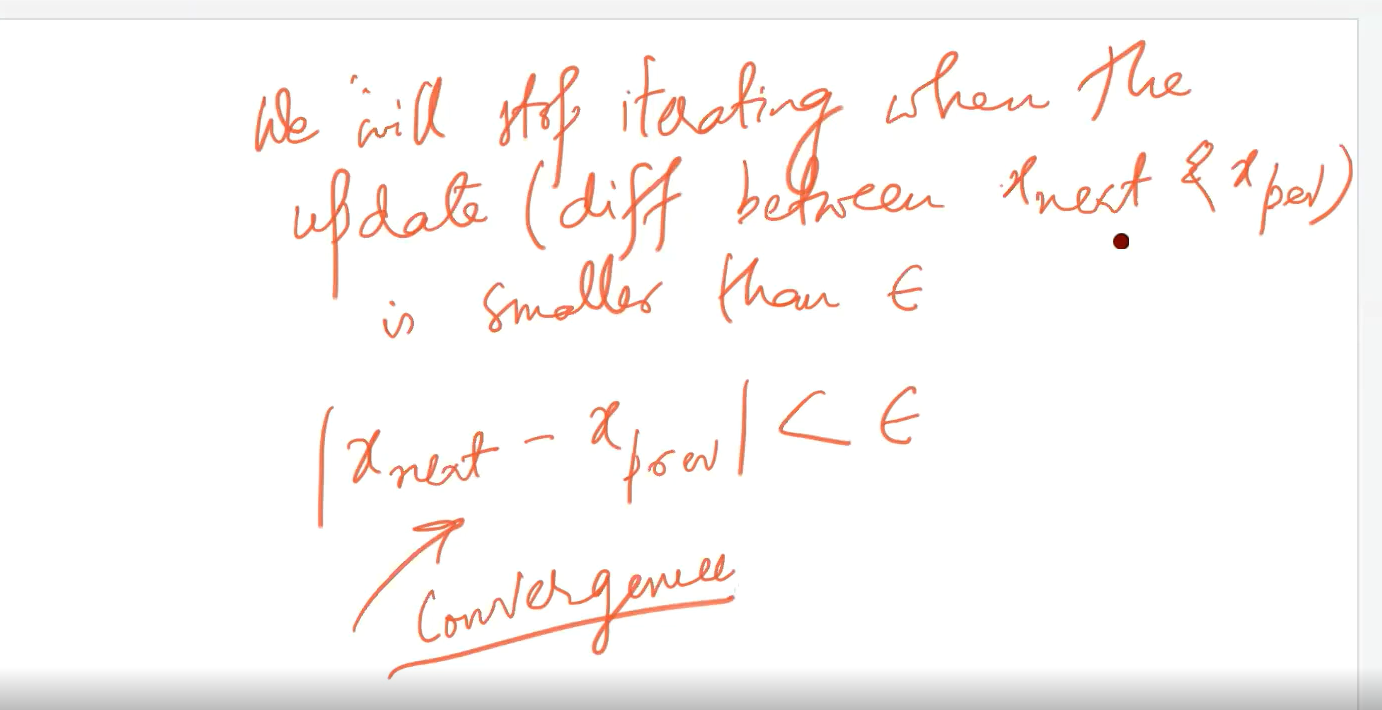 We will stop iterating when the
update (diff between xnext & xprev)
is smaller than ϵ
|xnext - xprev| < ϵ
Convergence